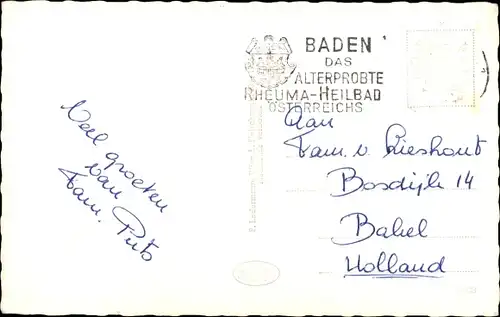 BADEN
DAS
ALTERPROBTE
RHEUMA-HEILBAD
ÖSTERREICHS
Aan
Fam. v. Lieshout
Bosdijk 14
Bakel
Holland
Veel groeten
van
Fam. Puts